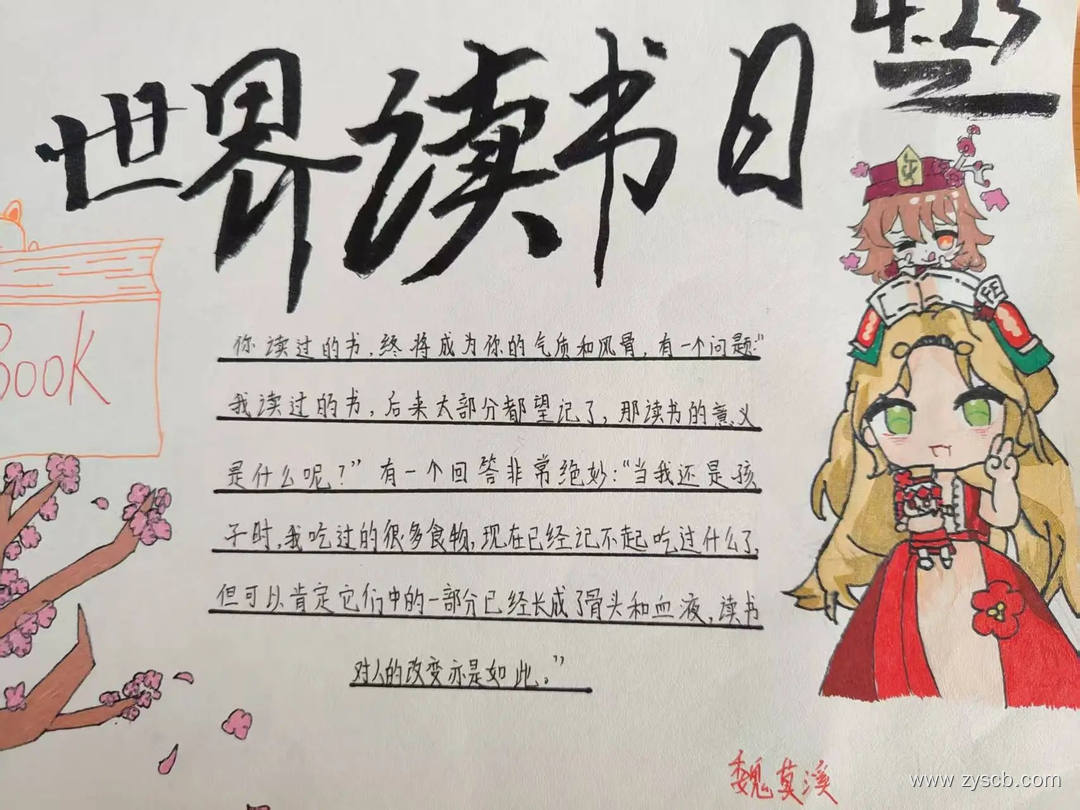 世界读书日
4.23
BooK
你读过的书，终将成为你的气质和风骨，有一个问题:“
我读过的书，后来大部分都望记了，那读书的意义
是什么呢？”有一个回答非常绝妙:“当我还是孩
子时，我吃过的很多食物，现在已经记不起吃过什么了
但可以肯定它们中的一部分已经长成了骨头和血液，读书
对人的改变亦是如此。”
魏莫溪
www.zyscb.com